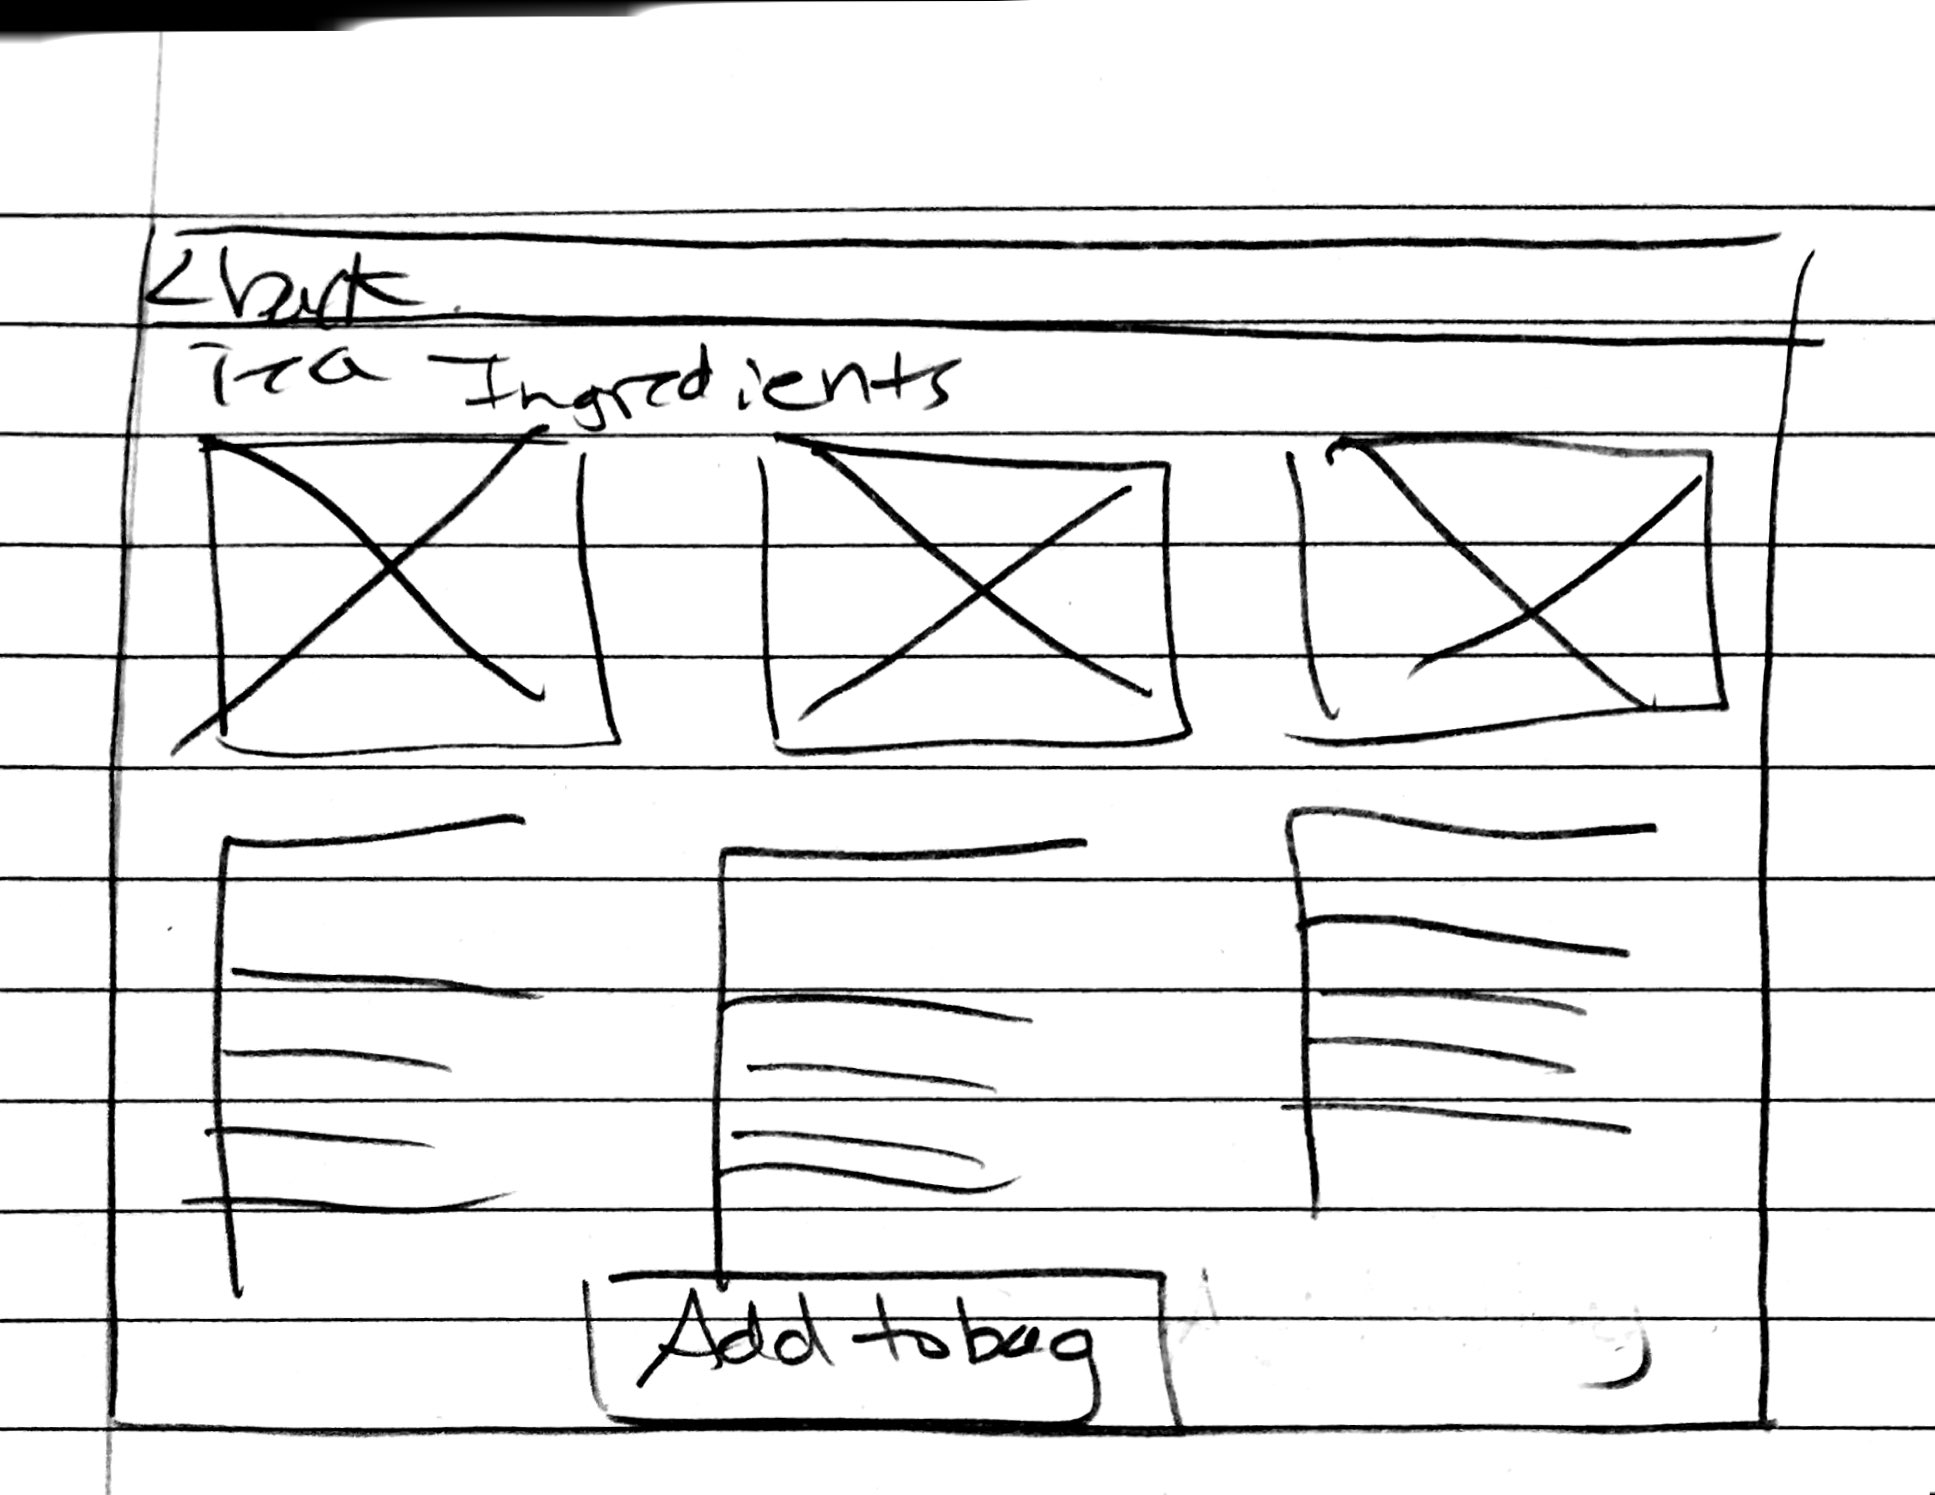 < back
Tea Ingredients
Add to bag